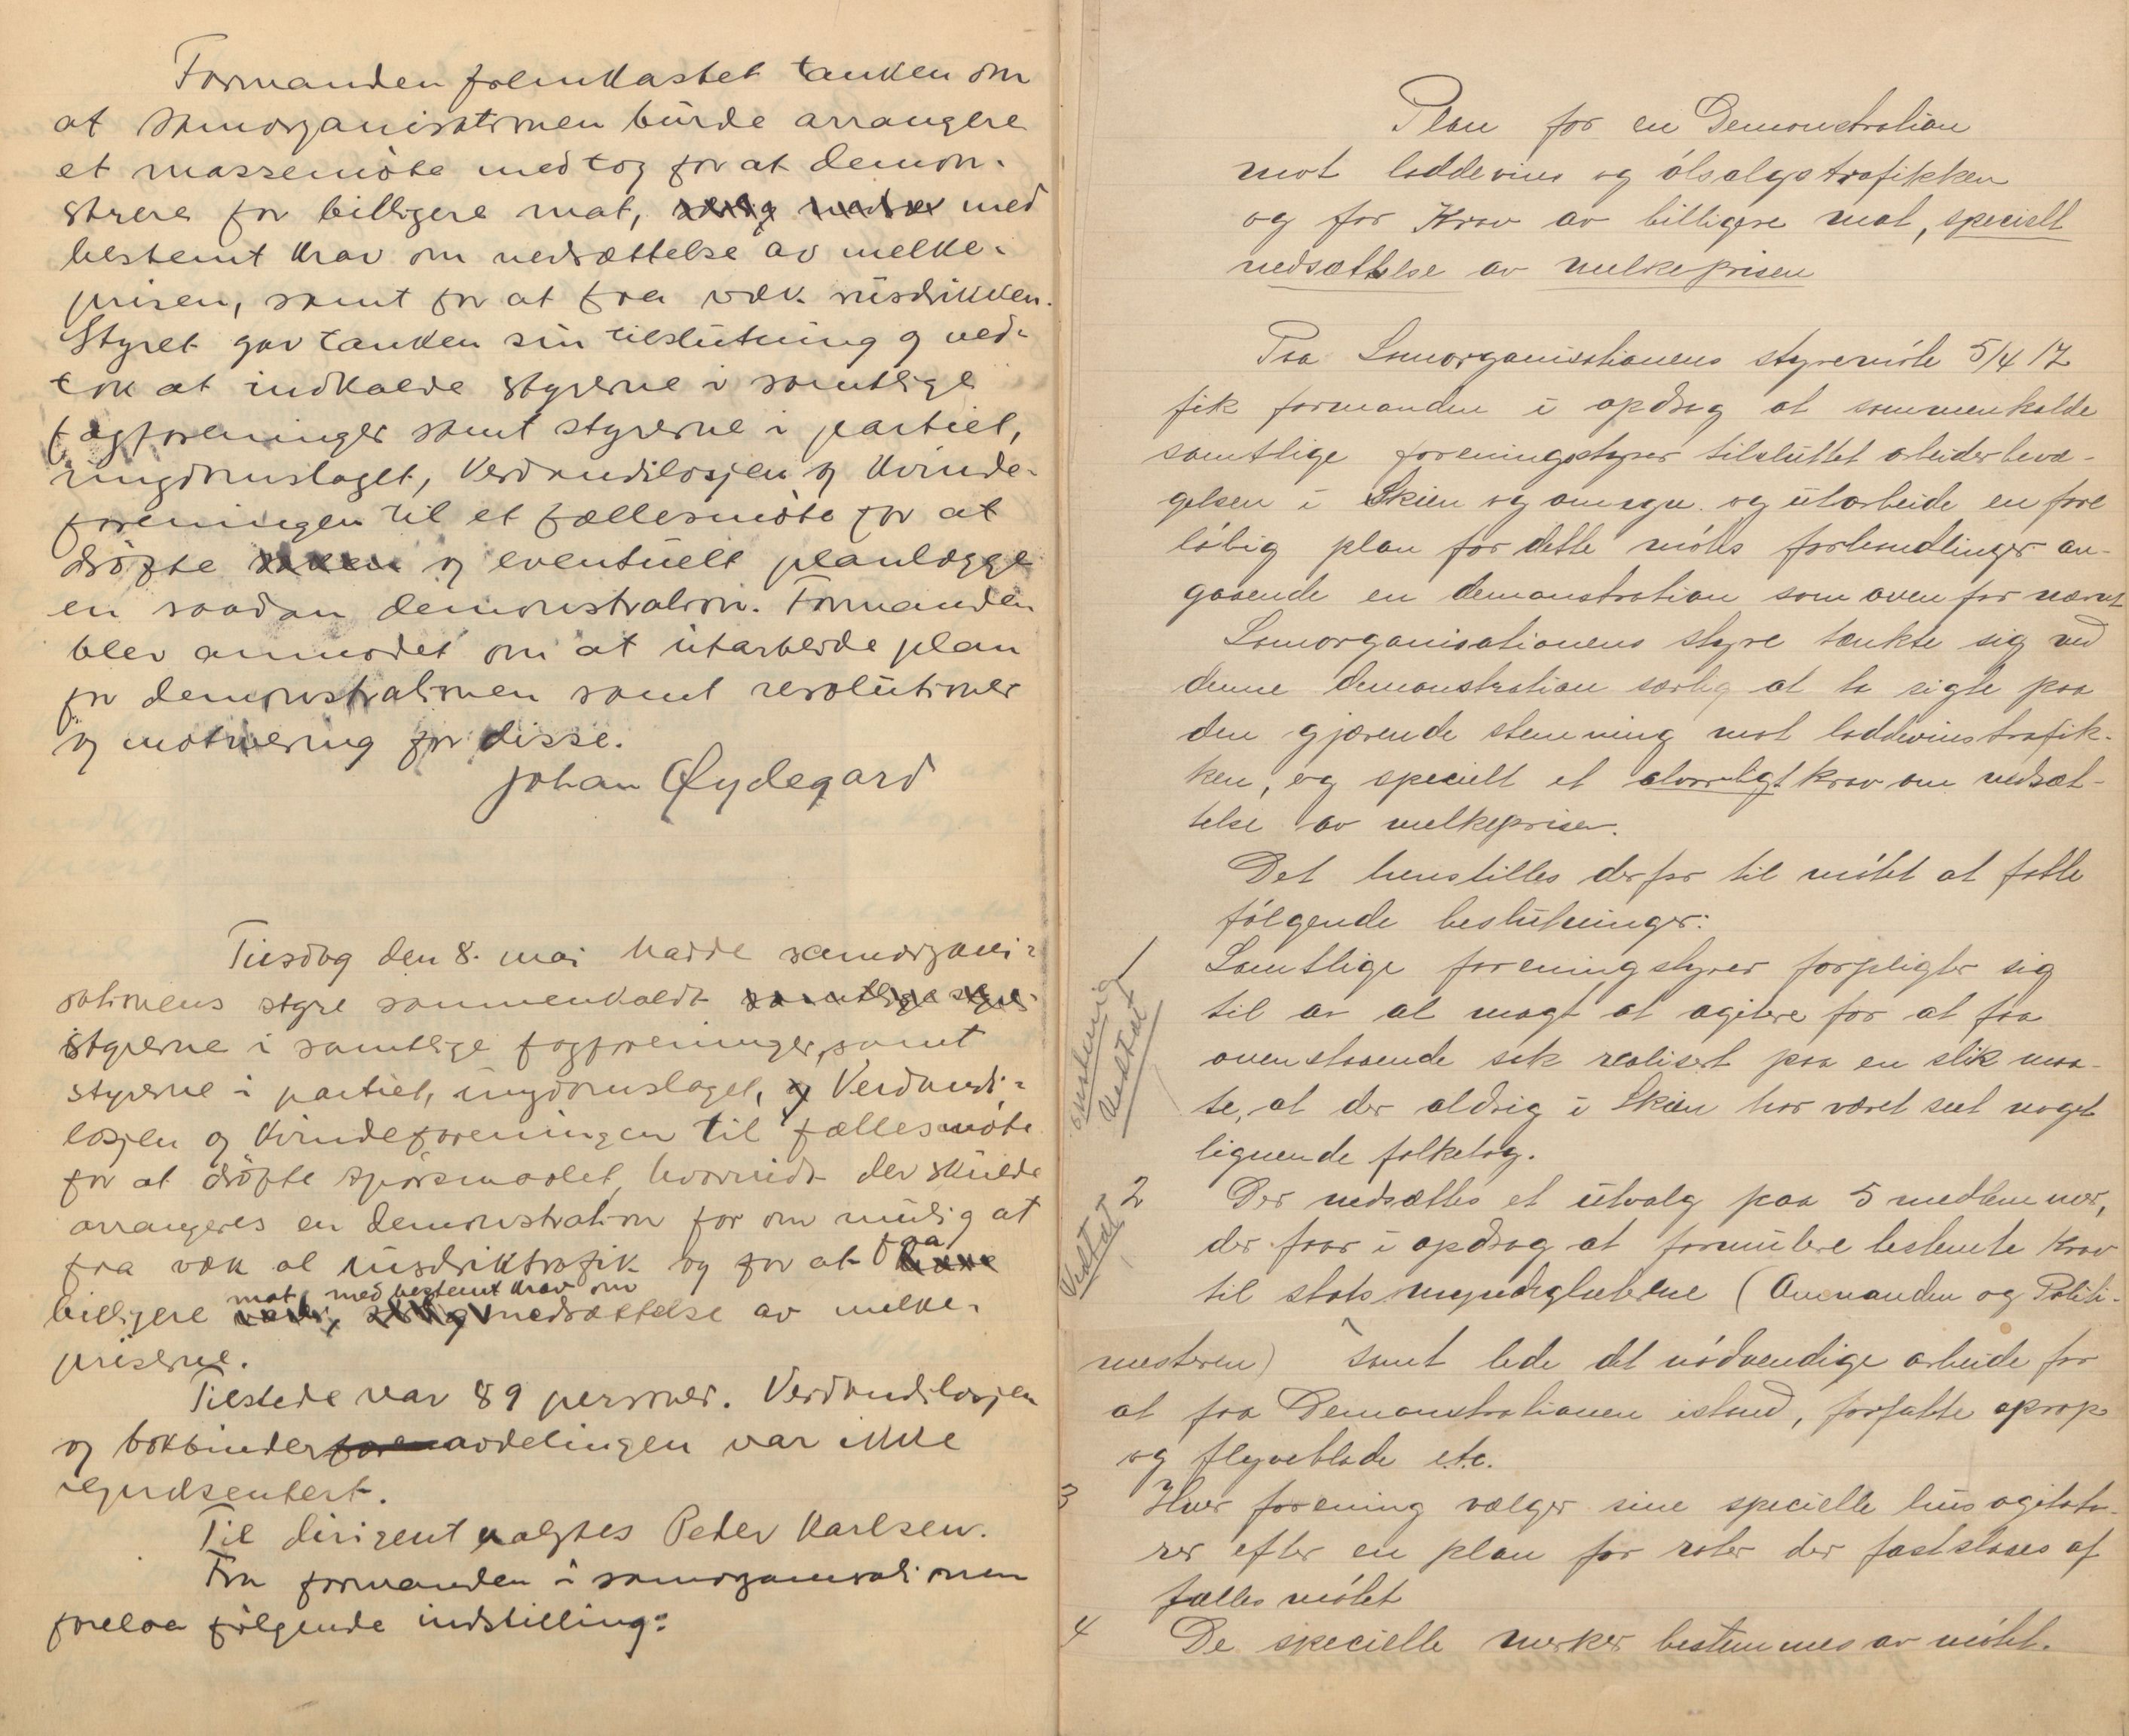 Formanden fremkastet tanken om
at samorganisationen burde arrangere
et massemöte med tog for at demon-
strere for billigere mat, med
bestemt krav om nedsættelse av melke-
prisen, samt for at faa væk rusdrikken.
Styret gav tanken sin tilslutning og ved-
tok at indkalde styrerne i samtlige
fagforeninger samt styrerne i partiet,
ungdomslaget, Verdandilosjen og Kvinde-
foreningen til et fællesmöte for at
dröfte saken og eventuelt planlægge
en saadan demonstration. Formanden
blev anmodet om at utarbeide plan
for demonstrationen samt resolutioner
og motivering for disse.
Johan Øydegard
Tirsdag den 8. mai hadde samorgani-
sationens styre sammenkaldt samtlige styre
styrerne i samtlige fagforeninger, samt
styrerne i partiet, ungdomslaget, og Verdandi-
losjen og Kvindeforeningen til fællesmöte
for at dröfte spörsmaalet, hvorvidt der skulde
arrangeres en demonstration for om mulig at
faa væk al rusdriktrafik og for at faa
mat, med bestemt krav om
billigere nedsættelse av melke-
priserne.
Tilstede var 89 personer. Verdandilosjen
og bokbinderforenavdelingen var ikke
repræsentert.
Til dirigent valgtes Peder Karlsen.
Fra formanden i samorganisationen
forelaa fölgende indstilling:
Plan for en Demonstration
mot laddevins og ölsalgstrafikken
og for Krav av billigere mat, specielt
nedsættelse av melkeprisen
Paa Samorganisationens styremöte 5/4 17
fik formanden i opdrag at sammenkalde
samtlige foreningsstyrer tilsluttet arbeiderbevæ-
gelsen i Skien og omegn og utarbeide en fore
löbig plan for dette mötes forhandlinger an-
gaaende en demonstration som ovenfor nævnt
Samorganisationens styre tænkte sig ved
denne demonstration særlig at ta sigte paa
den gjærende stemning mot laddevinstrafik-
ken, og specielt et alvorligt krav om nedsæt-
telse av melkeprisen.
Det henstilles derfor til mötet at fatte
fölgende beslutninger:
1 Samtlige foreningstyrer forpligter sig
til av al magt at agitere for at faa
ovenstaaende sak realisert paa en slik maa-
te, at der aldrig i Skien har været seet noget
lignende folketog.
enstemmig
vedtat
2 Der nedsættes et utvalg paa 5 medlemmer,
der faar i opdrag at formulere bestemte Krav
til statsmyndigheterne (Amtmanden og Politi-
mesteren) samt lede det nödvendige arbeide for
at faa Demonstrationen istand, forfatte oprop
og flyveblade etc.
Vedtat
3 Hver forening vælger sine specielle husagitato-
rer efter en plan for roter der fastslaaes af
fællesmötet
4 De specielle merker bestemmes av mötet.